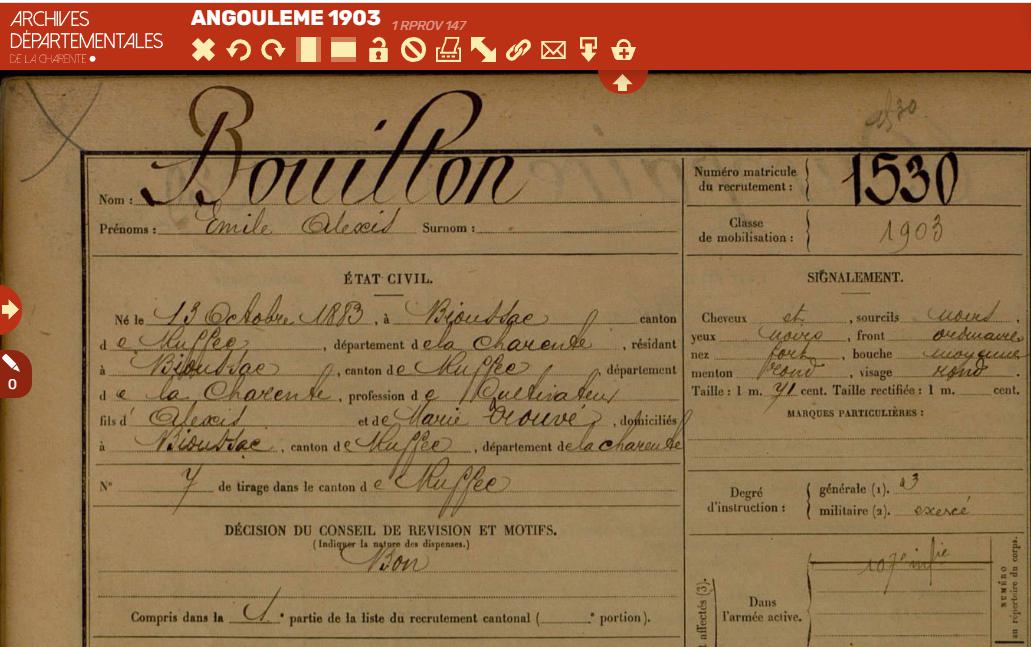 ARCHIVES
DÉPARTEMENTALES
DE LA CHARENTE
ANGOULEME 1903 1 RPROV 147
0
Bouillon
Nom :
Prénoms : Emile Alexis Surnom :
Numéro matricule du recrutement : 1530
Classe de mobilisation : 1903
ÉTAT CIVIL.
Né le 13 Octobre 1883, à Bioussac canton
de Ruffec, département de la Charente, résidant
à Bioussac, canton de Ruffec, département
de la Charente, profession de Cultivateur
fils d' Alexis et de Marie Trouvé, domiciliés
à Bioussac, canton de Ruffec, département de la Charente
N° 7 de tirage dans le canton de Ruffec
DÉCISION DU CONSEIL DE REVISION ET MOTIFS.
(Indiquer la nature des dispenses.)
Bon
Compris dans la 1e partie de la liste du recrutement cantonal ( e portion).
SIGNALEMENT.
Cheveux et, sourcils noirs,
yeux noirs, front ordinaire
nez fort, bouche moyenne
menton rond, visage rond.
Taille : 1 m. 71 cent. Taille rectifiée : 1 m. cent.
MARQUES PARTICULIÈRES :
Degré d'instruction : générale (1). 3
militaire (2). exercé
affectés (3).
Dans l'armée active. 107e infie
NUMÉRO
au répertoire du corps.